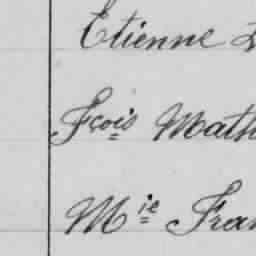 Etienne
Fçois Math
Mie Fran